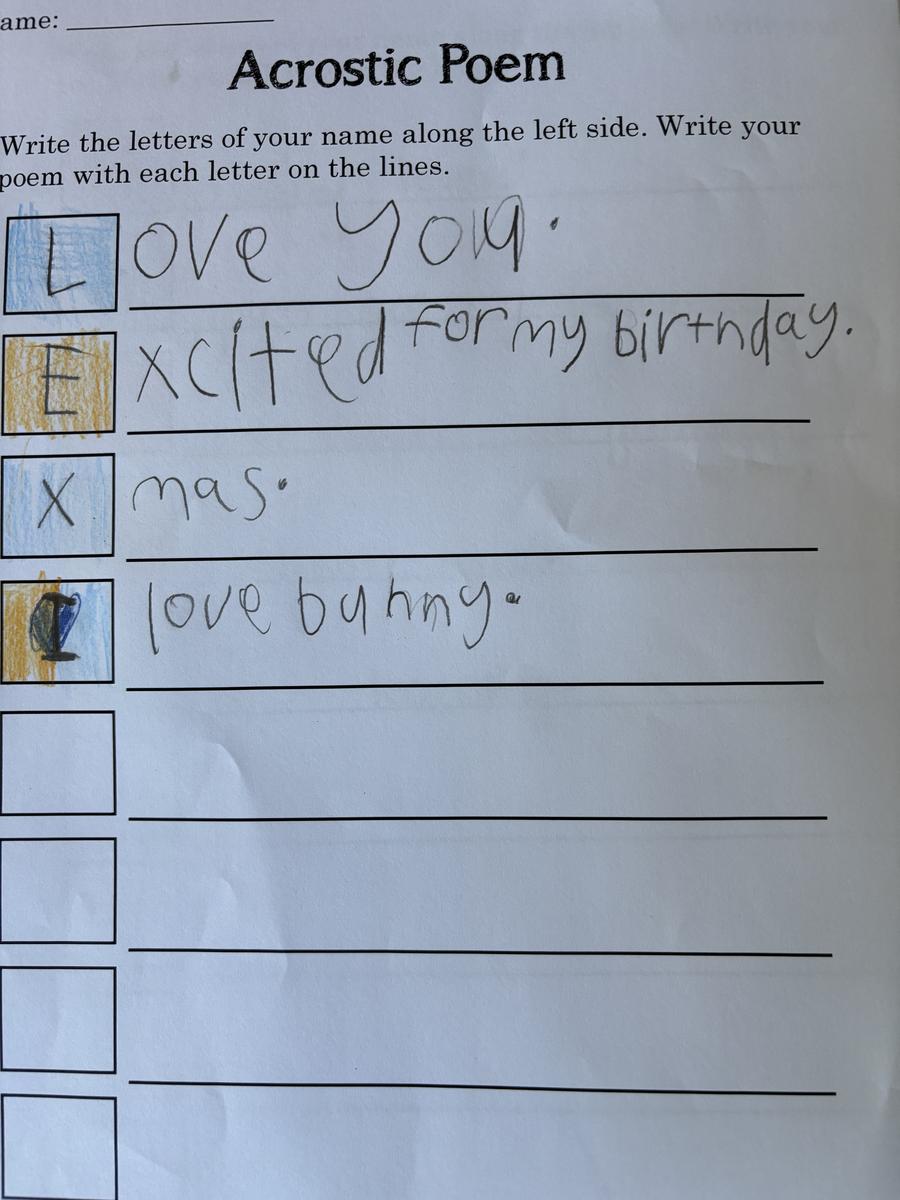 ame:
Acrostic Poem
Write the letters of your name along the left side. Write your
poem with each letter on the lines.
L ove you.
E xcited for my birthday.
X mas.
I love bunny.